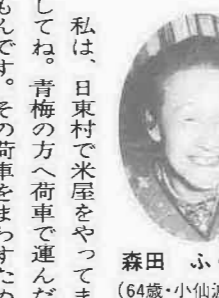 私は、日東村で米屋をやってま
してね。青梅の方へ荷車で運んだ
もんです。その荷車をまわすため
森田 ふ
(64歳・小仙波